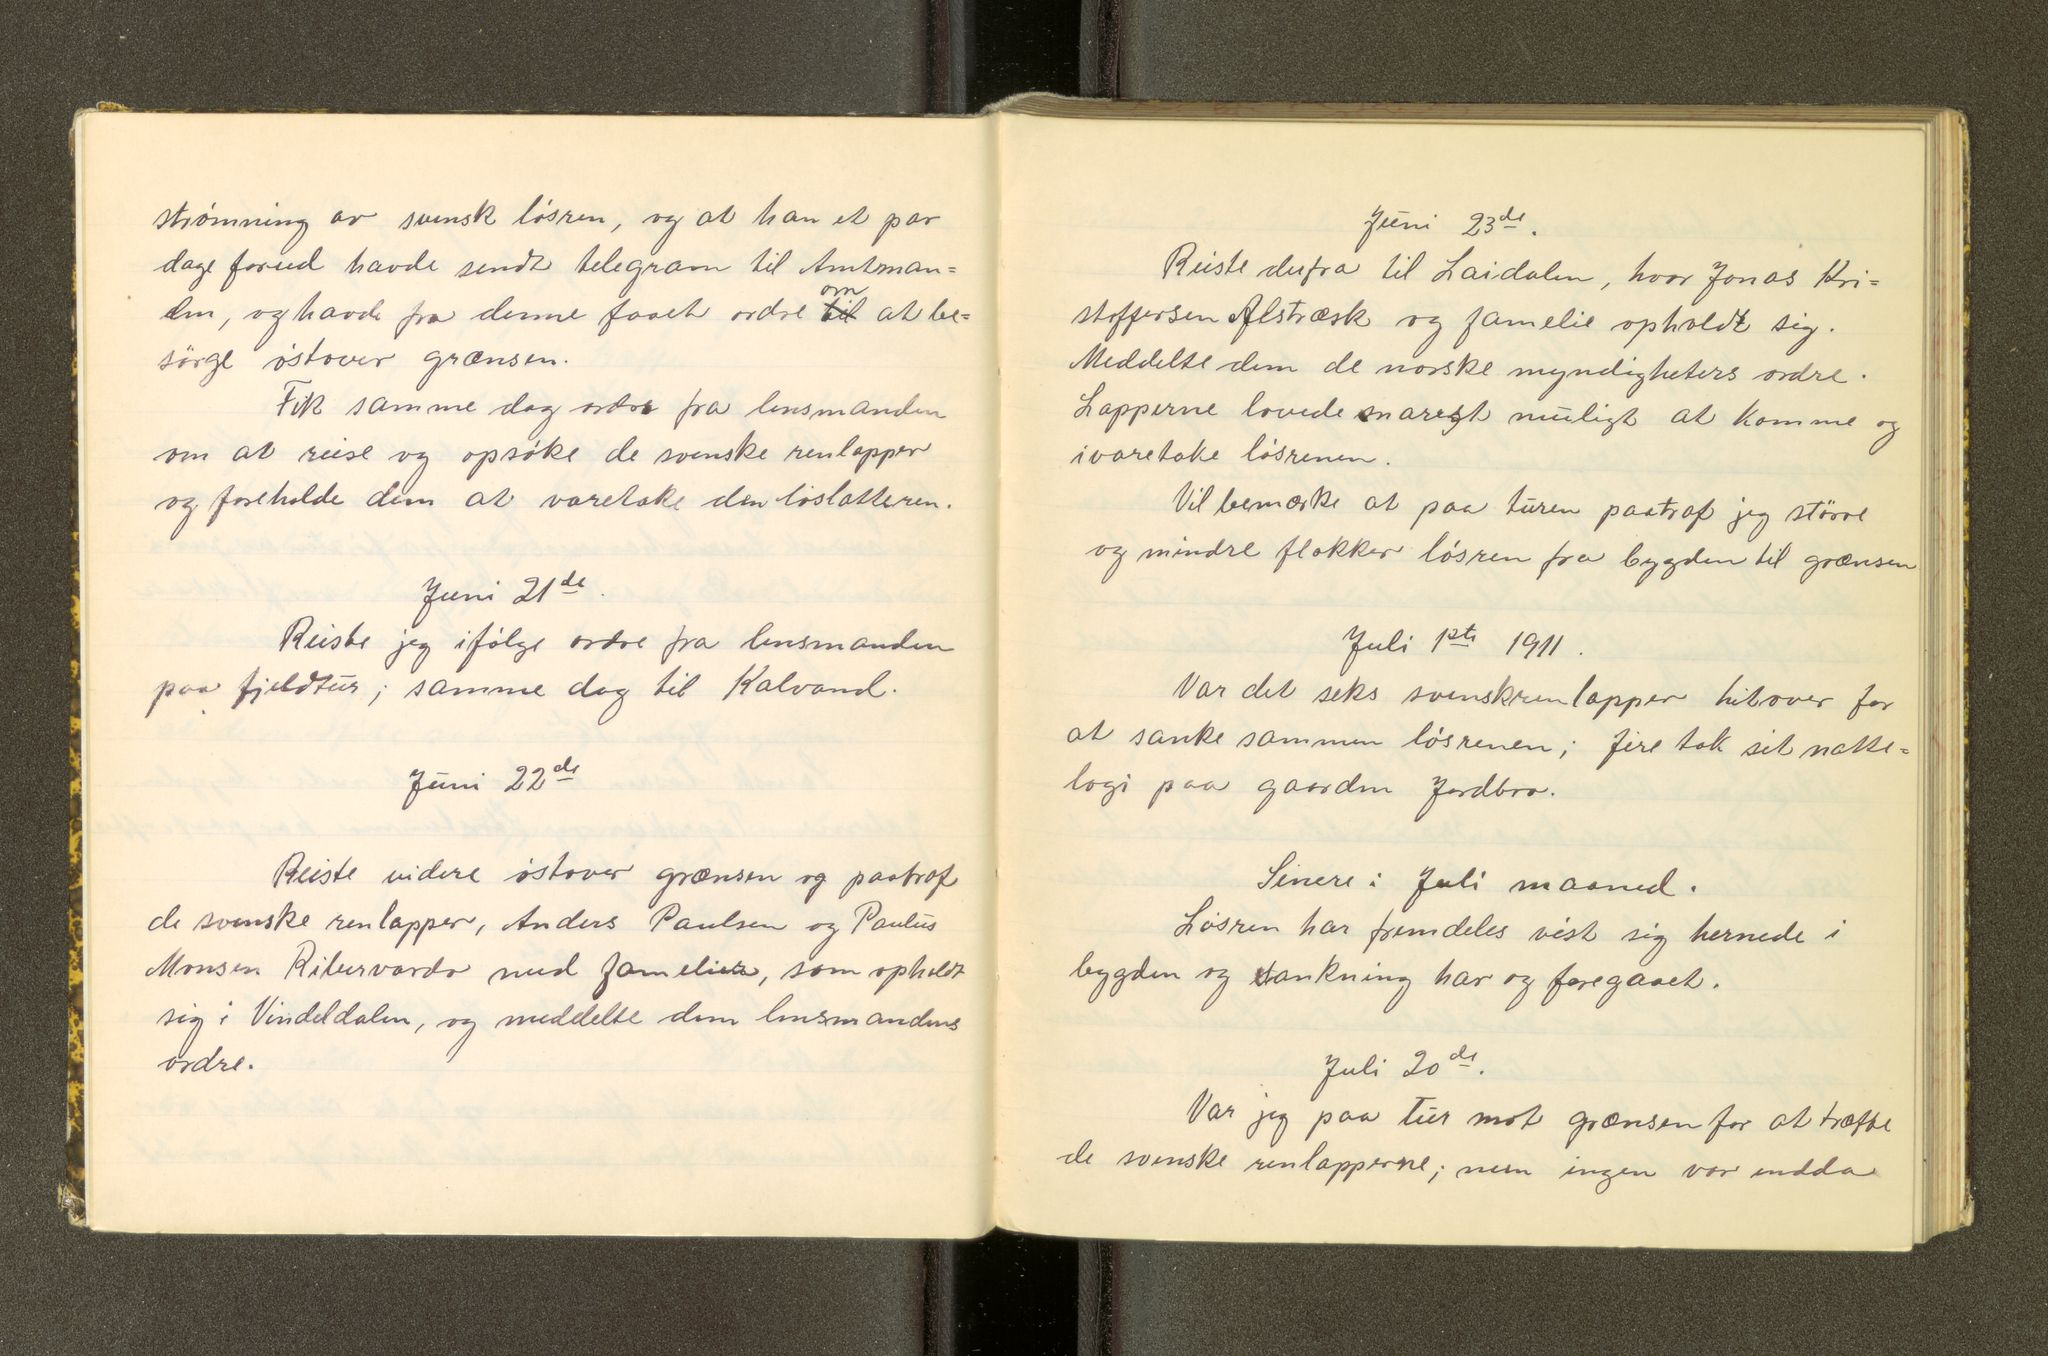 strømning av svensk løsren, og at han et par
dage forud havde sendt telegram til Amtman=
den, og havde fra denne faaet ordre om at be=
sørge østover grænsen.
Fik samme dag ordre fra lensmanden
om at reise og opsøke de svenske renlapper
og foreholde dem at varetake den løslatte ren.
Juni 21de.
Reiste jeg ifølge ordre fra lensmanden
paa fjeldtur; samme dag til Kalvand.
Juni 22de
Reiste videre østover grænsen og paatraf
de svenske renlapper, Anders Paulsen og Paulus
Monsen med familier, som opholdt
sig i Vindeldalen, og meddelte dem lensmandens
ordre.
Juni 23de.
Reiste derfra til Laidalen, hvor Jonas Kri=
stoffersen Alstræsk og famelie opholdt sig.
Meddelte dem de norske myndigheters ordre.
Lapperne lovede snarest muligt at komme og
ivaretake løsrenen.
Vil bemærke at paa turen paatraf jeg større
og mindre flokker løsren fra bygden til grænsen
Juli 1ste 1911.
Var det seks svenskrenlapper hitover for
at sanke sammen løsrenen; fire tok sit natte=
logi paa gaarden Jordbro.
Sinere i Juli maaned.
Løsren har fremdeles vist sig hernede i
bygden og sankning har og foregaaet.
Juli 20de.
Var jeg paa tur mot grænsen for at træffe
de svenske renlapperne; men ingen var endda